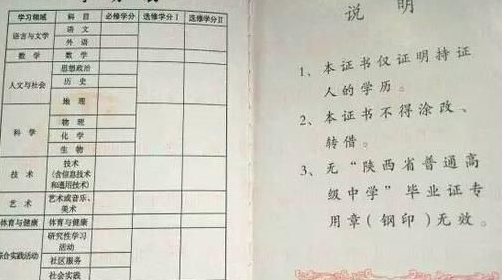 学习领域 科目 必修学分 选修学分Ⅰ 选修学分Ⅱ
语言与文学 语文
外语
数学 数学
人文与社会 思想政治
历史
地理
科学 物理
化学
生物
技术 技术
(含信息技术
和通用技术)
艺术 艺术或音乐、
美术
体育与健康 体育与健康
综合实践活动 研究性学习
活动
社区服务
社会实践
说明
1、本证书仅证明持证
人的学历。
2、本证书不得涂改、
转借。
3、无“陕西省普通高
级中学”毕业证专
用章(钢印)无效。